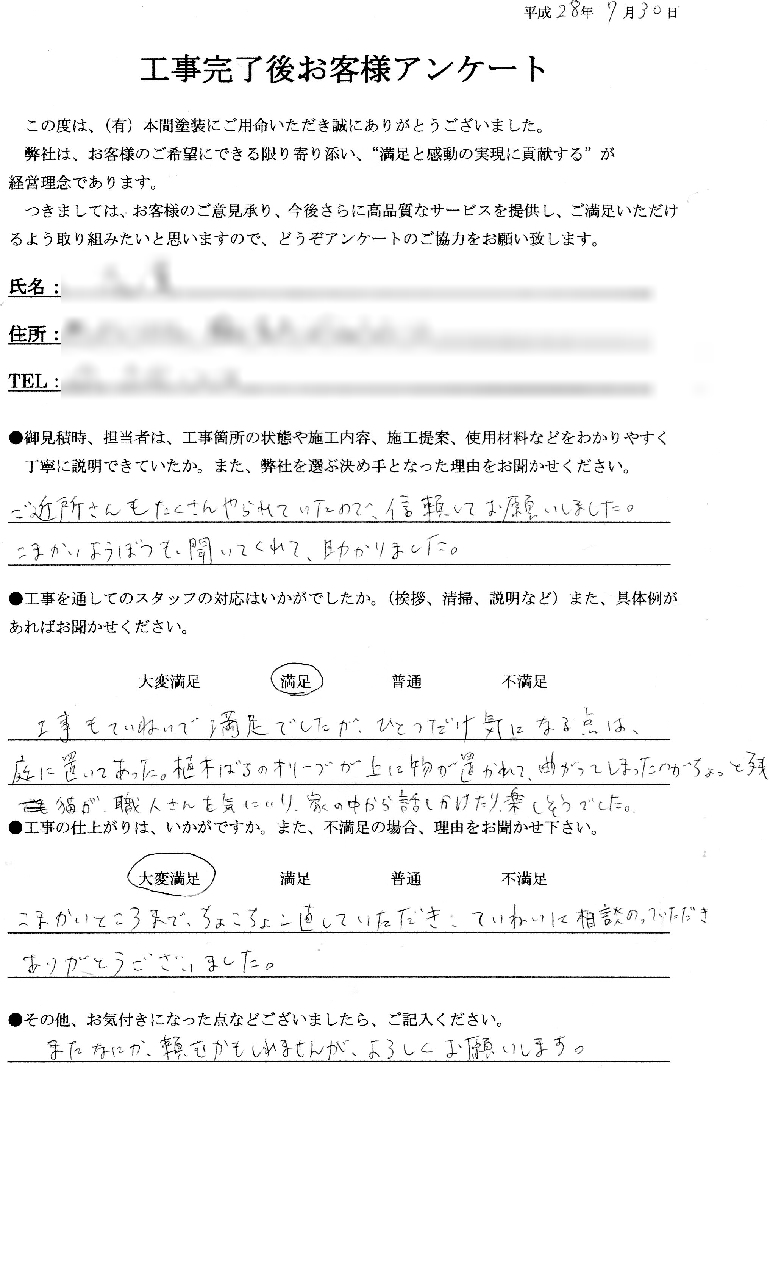 平成28年 7月30日
工事完了後お客様アンケート
この度は、(有)本間塗装にご用命いただき誠にありがとうございました。
弊社は、お客様のご希望にできる限り寄り添い、“満足と感動の実現に貢献する”が
経営理念であります。
つきましては、お客様のご意見承り、今後さらに高品質なサービスを提供し、ご満足いただけ
るよう取り組みたいと思いますので、どうぞアンケートのご協力をお願い致します。
氏名:
住所:
TEL:
●御見積時、担当者は、工事箇所の状態や施工内容、施工提案、使用材料などをわかりやすく
丁寧に説明できていたか。また、弊社を選ぶ決め手となった理由をお聞かせください。
ご近所さんもたくさんやられていたので、信頼してお願いしました。
こまかいようぼうも、聞いてくれて、助かりました。
●工事を通してのスタッフの対応はいかがでしたか。(挨拶、清掃、説明など)また、具体例が
あればお聞かせください。
大変満足 満足 普通 不満足
工事もていねいで満足でしたが、ひとつだけ気になる点は、
庭に置いてあった。植木ばちのオリーブが上に物が置かれて、曲がってしまったのがちょっと残
猫が、職人さんを気にいり、家の中から話しかけたり、楽しそうでした。
●工事の仕上がりは、いかがですか。また、不満足の場合、理由をお聞かせ下さい。
大変満足 満足 普通 不満足
こまかいところまで、ちょこちょこ直していただき、ていねいに相談のっていただき
ありがとうございました。
●その他、お気付きになった点などございましたら、ご記入ください。
またなにか、頼むかもしれませんが、よろしくお願いします。